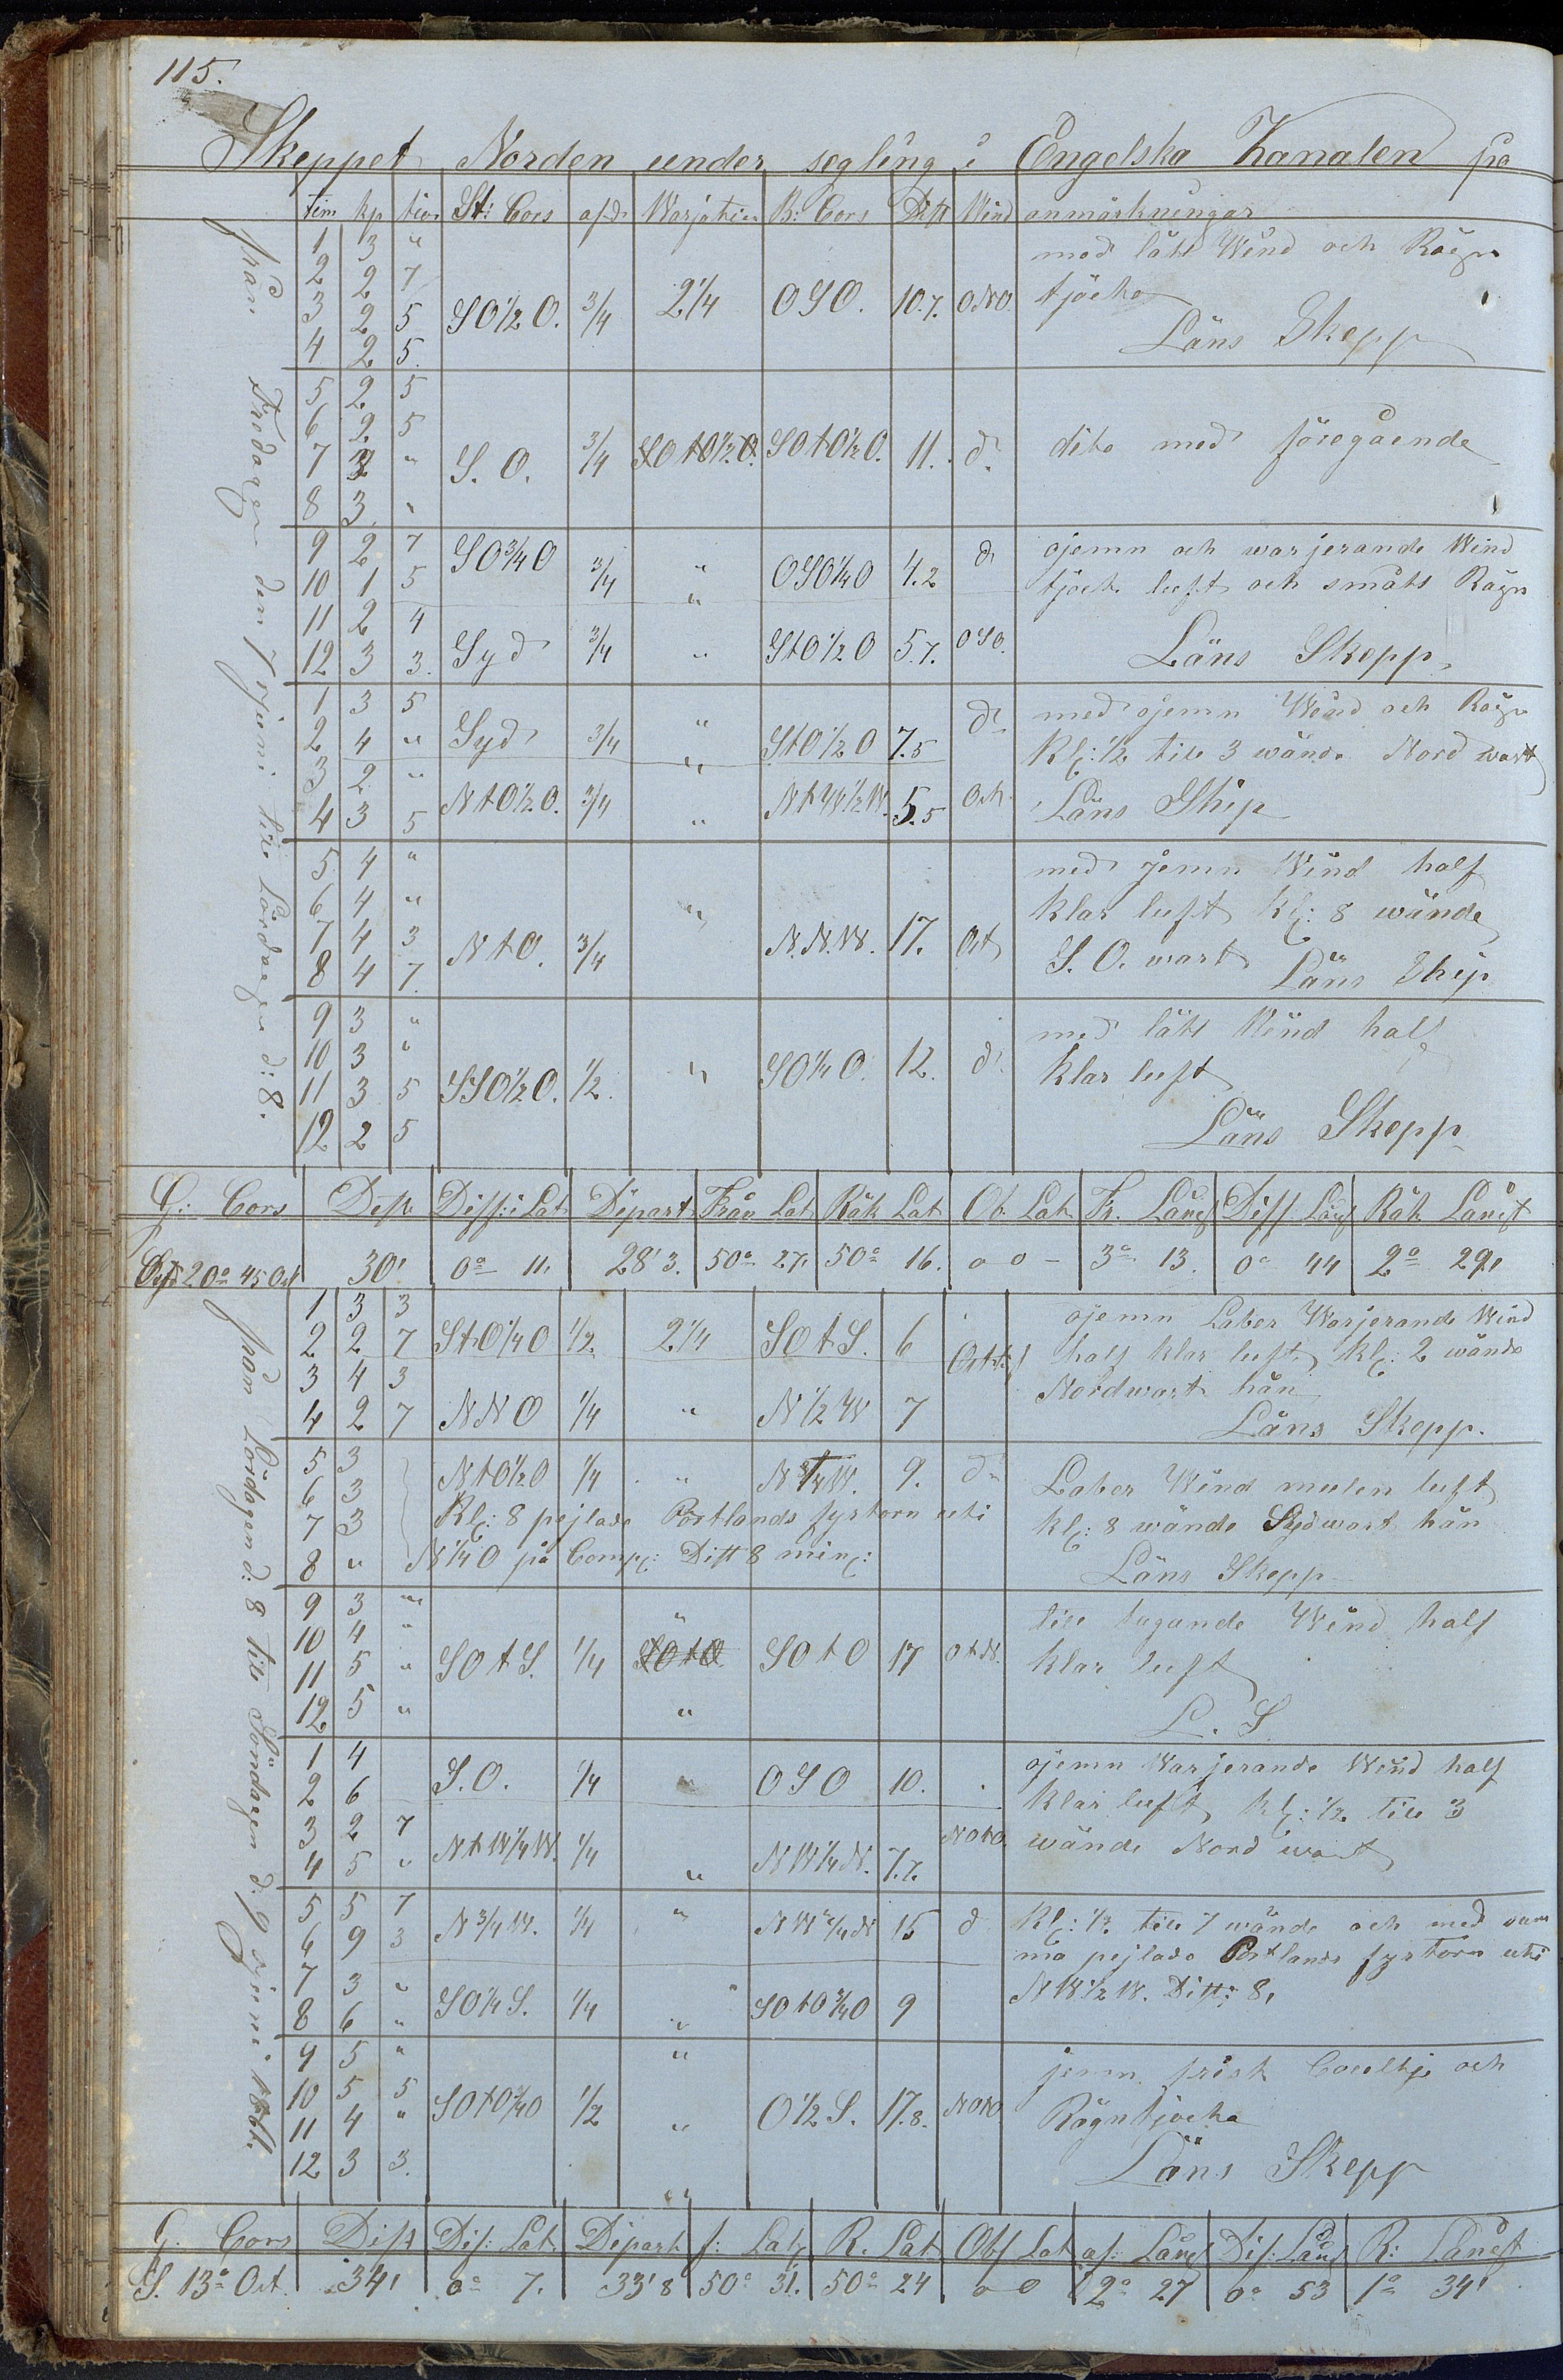 115.
Skeppet Norden under segling i Engelska Kanalen på
tim kp tior St: Cors afd Warjation B: Cors Dist Wind anmärkningar
från Fredagen den 7 juni till Lördagen d: 8.
1 3 " med lätt Wind och Rägn
2 2 7 tjocka
3 2 5 SO½O. ¾ 2¼ OSO. 10.7. ONO.
4 2 5. Läns Skepp
5 2 5
6 2 5 dito med föregående
7 3 " S.O. ¾ SOtO½O. 11. d:
8 3 "
9 2 7 SO¾O ¾ " OSO¼O 4.2 d: ojemn och warjerande Wind
10 1 5 " tjock luft och smått Rägn
11 2 4
12 3 3. Syd ¾ " StO½O 5.7. OSO. Läns Skepp
1 3 5 med ojemn Wind och Rägn
2 4 " Syd ¾ " StO½O 7.5 d: Kl: ½ till 3 wände Nord wart
3 2 "
4 3 5 NtO½O. ¾ " NtW½W. 5.5 Ost Läns Skip
5 4 " med jemn Wind half
6 4 " klar luft Kl: 8 wände
7 4 3 NtO. ¾ " N.N.W. 17. Ost S.O. wart
8 4 7. Läns Skip
9 3 " med lätt Wind half
10 3 " klar luft
11 3 5 SSO½O. ½ " SO¼O. 12. d:
12 2 5 Läns Skepp
G: Cors Dist Diff: i Lat Depart Från Lat Räk Lat Ob Lat Fr. Läng Diff Läng Räk Längt
20° 45 Ost 30' 0° 11. 28'3. 50° 27. 50° 16. o o - 3° 13. 0° 44 2° 29'
från Lördagen d: 8 till Söndagen d: 9 juni 1861.
1 3 3 ojemn Laber Warjerande Wind
2 2 7 StO¼O ½ 2¼ SOtS. 6 half klar luft, Kl: 2 wände
3 4 3 Nordwart hän
4 2 7 NNO ¼ " N½W 7 Läns Skepp.
5 3 NtO½O ¼ " 9. d: Laber Wind mulen luft
6 3 Kl: 8 pejlade Portlands fyrtorn uti Kl: 8 wände Sydwart hän
7 3 N¼O på Comp: Dist 8 min:
8 " Läns Skepp
9 3 " till tagande Wind half
10 4 " klar luft
11 5 " SOtS. ¼ SOtO SOtO 17 OtN.
12 5 " " L. S
1 4 ojemn Warjerande Wind half
2 6 S.O. ¼ " OSO 10. klar luft, Kl: ½ till 3
3 2 7 NOtO wände Nord wart
4 5 " NtW¼W. ¼ " NW¼N. 7.7.
5 5 7 Kl: ½ till 7 wände och med sam
6 9 3 N¾W. ¼ " 15 d ma pejlade Portlands fyrtorn uti
7 3 " NW½W. Dist: 8,
8 6 " SO¼S. ¼ " SOtO¾O 9
9 5 " " jemn frisk Coultje och
10 5 5 Rägntjocka
11 4 " SOtO¾O ½ " O½S. 17.8. NOtO
12 3 3. Läns Skepp
G. Cors Dist Dif: Lat Depart f: Lat R. Lat Obs Lat af: Läng Dif: Läng R: Längt
S. 13° Ost. 34' 0° 7. 33'8 50° 31. 50° 24 o o 2° 27 0° 53 1° 34'